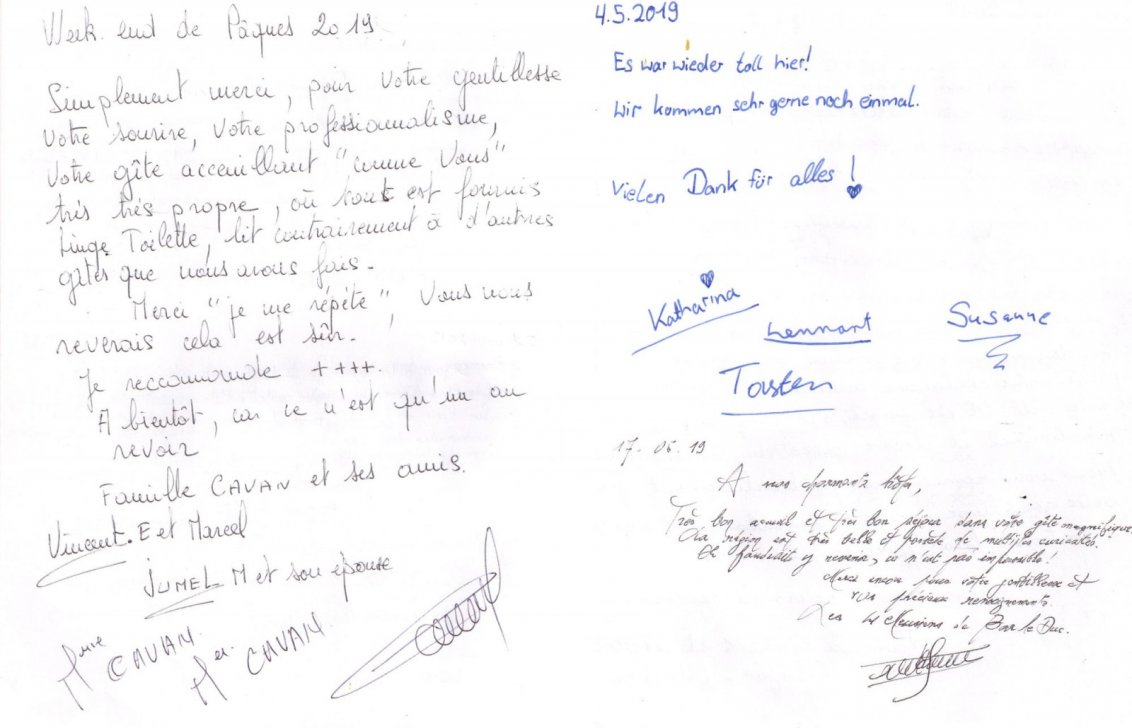 Week end de Pâques 2019.
Simplement merci, pour votre gentillesse
votre sourire, votre professionnalisme,
votre gîte acceuillant "comme Vous"
très très propre, où tout est fournis
Linge Toilette, lit contrairement à d'autres
gîtes que nous avons fais.
Merci "je me répète", Vous nous
reverais cela est sûr.
Je reccommande ++++.
A bientôt, car ce n'est qu'un au
revoir
Famille CAVAN et ses amis.
Vincent. E et Marcel
JUMEL M et son épouse
CAVAN
CAVAN
4.5.2019
Es war wieder toll hier!
Wir kommen sehr gerne noch einmal.
Vielen Dank für alles!
Katharina
Lennart
Susanne
Torsten
17.05.19
A nos charmants hôtes,
Très bon accueil et très bon séjour dans votre gîte magnifique.
La région est très belle et possède de multiples curiosités.
Il faudrait y revenir, ce n'est pas impossible!
Merci encore pour votre gentillesse et
vos précieux renseignements.
Les de Bar le Duc.